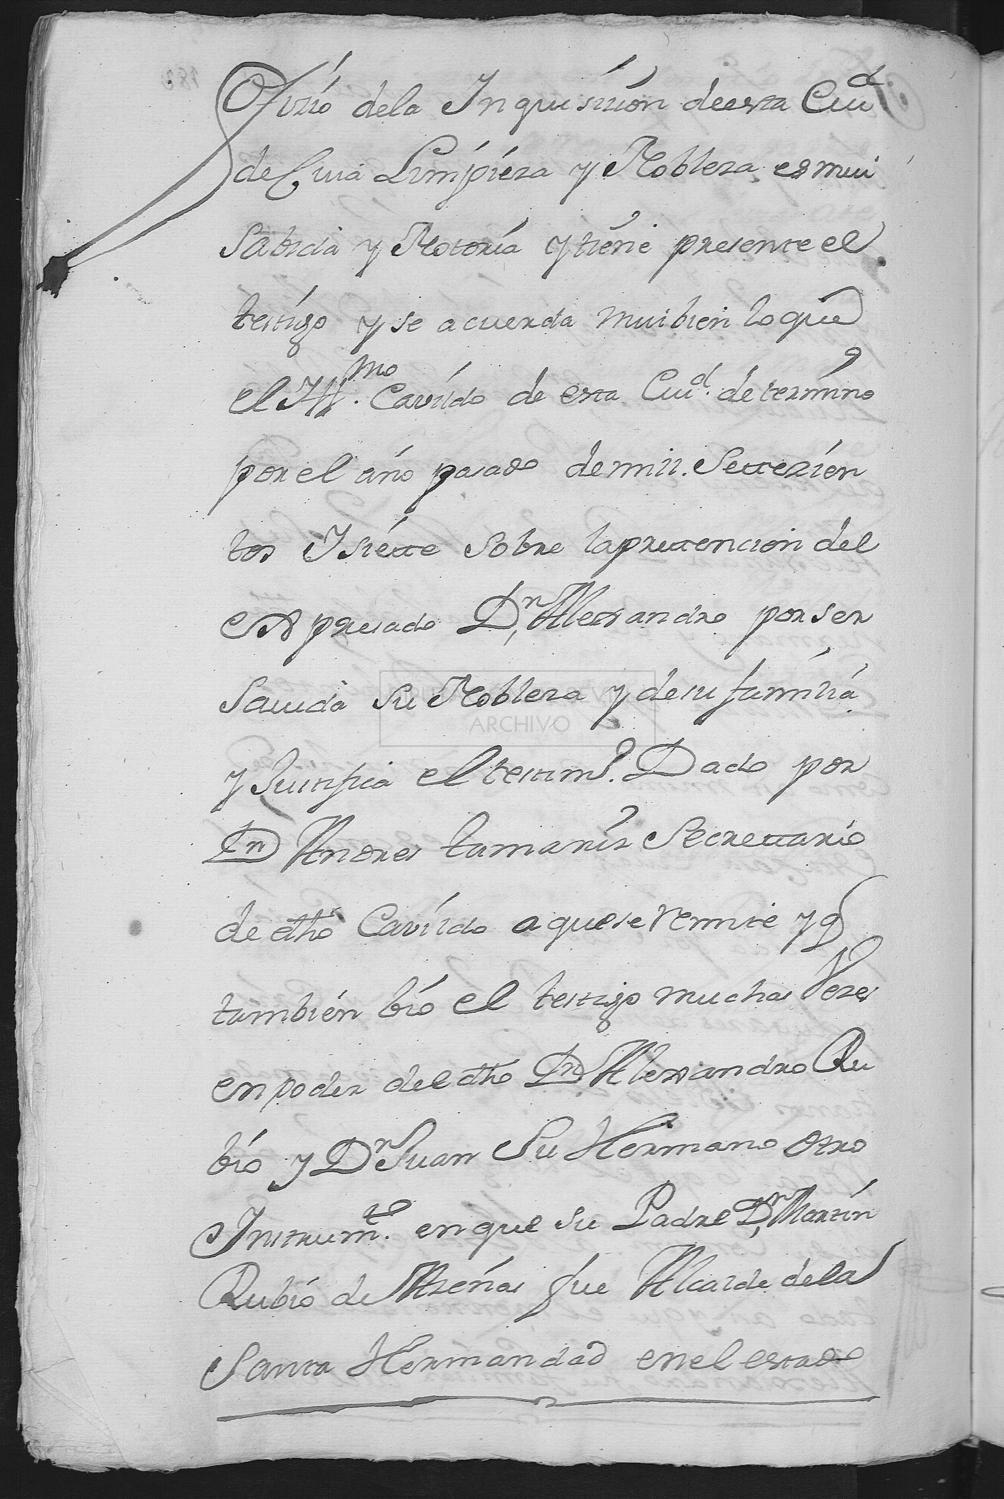 Ofizio dela Inquisizion deesta Ciud
de Cuia Limpieza y Nobleza es mui
Sabida y Notoria y tiene presente el
testigo y se acuerda mui bien lo que
el Ill.mo Cavildo de esta Ciud. determino
por el año pasado demill. Settezien
tos I siette sobre la prettencion del
expresado Dn Alexandro por ser
Sauida su Nobleza y de su familia
y Justifica el testimo. Dado por
Dn Andres tamariz Secrettario
de dho Cavildo a que se Remite y q
tambien bio el testigo muchas Vezes
en poder del dho Dn Alexandro Ru
bio y Dn Juan Su Hermano otro
Instrumto. en que su Padre Dn Martin
Rubio de Atreñas fue Alcalde de la
Santa Hermandad en el estado
ARCHIVO